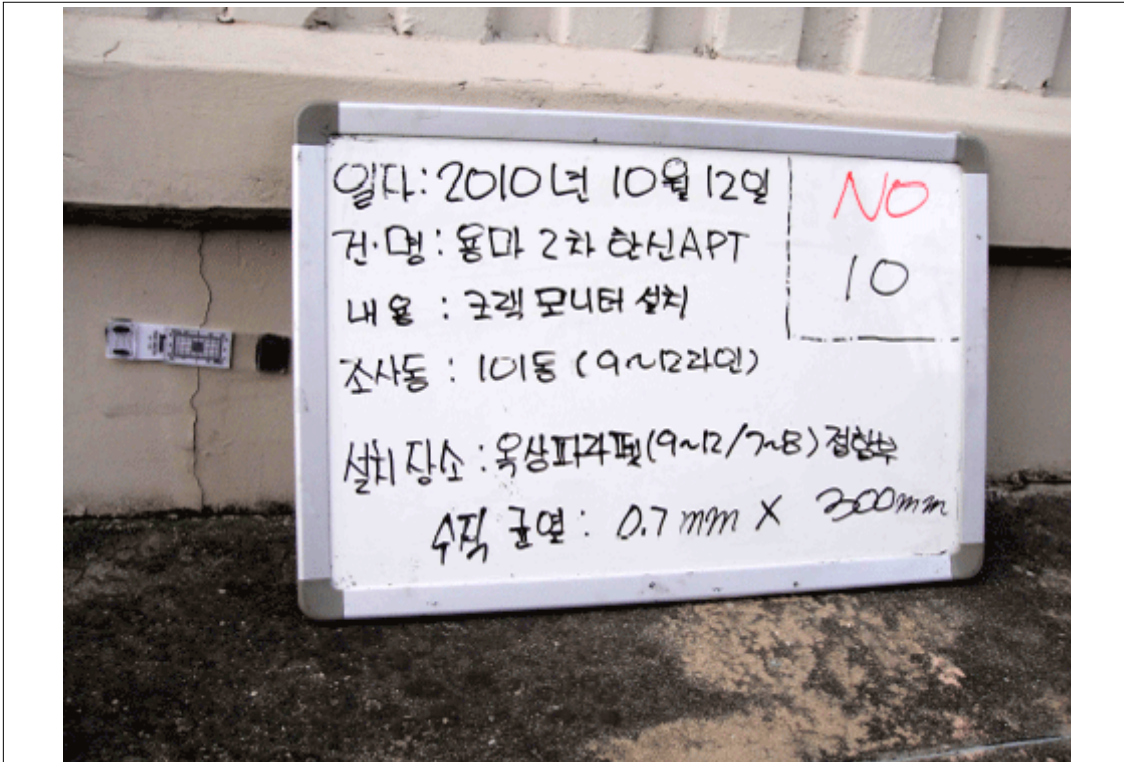 일자: 2010년 10월 12일
NO
10
건·명: 용마 2차 한신APT
내용 : 크랙 모니터 설치
조사동 : 101동 (9~12라인)
설치장소 : 옥상파라펫(9~12/7~8) 접합부
수직 균열 : 0.7mm X 300mm